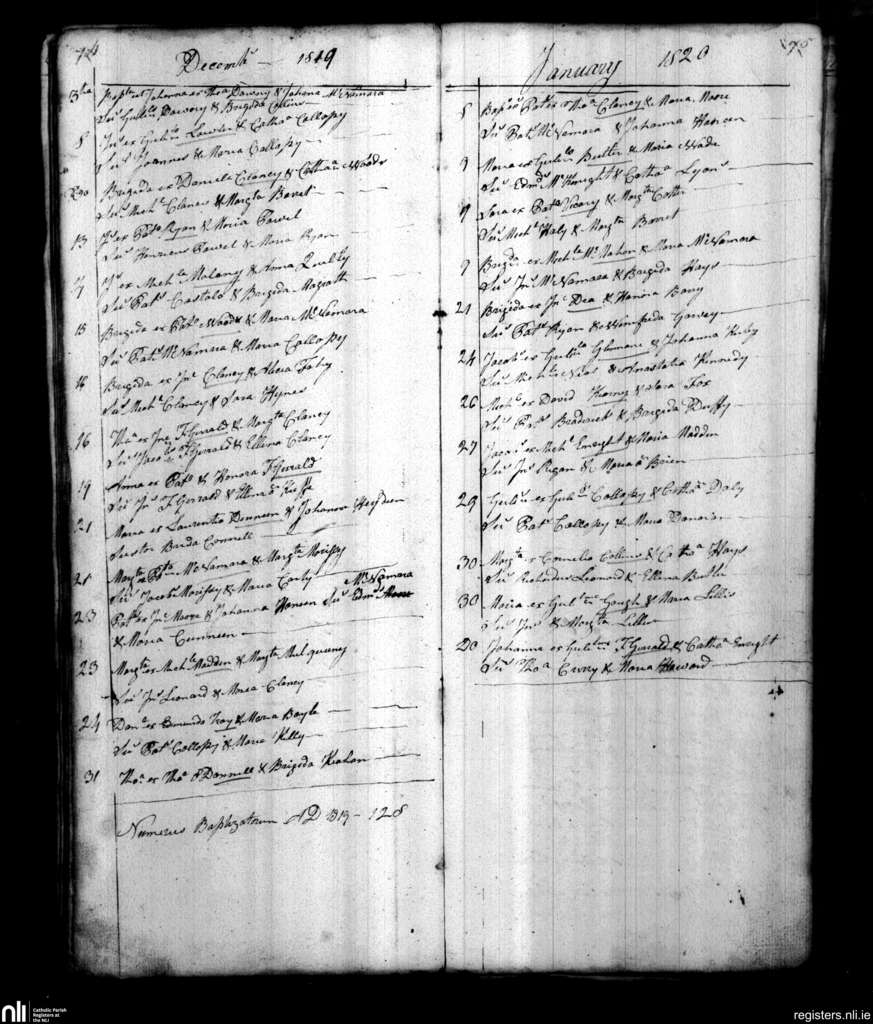 74
Decemb.r 1819
3tia Baptizat Johanna ex Tho.s Dawny & Johana McNamara
Su.s Gul.ms Dawony & Brigida Collins
5 Jn.s ex Gul.mo Lawler & Catha Callopy
Su.s Joannes & Maria Callopy
Brigida ex Daniele Clancy & Catha.a Woods
Su.s Mich.l Clancy & Margta Bonet
13 Js ex Pat.o Ryan & Maria Powel
Su.s Powel & Maria Ryan
17 ex Mich.le Malony & Anna Quilty
Su.s Pat.s Costolo & Brigida Magrath
18 Brigida ex Pat.o Woods & Maria McNamara
Su.s Pat.s McNamara & Maria Callopy
18 Brigida ex Jne Clancy & Alicia Fahy
Su.s Mich.l Clancy & Sara Hynes
16 Tho.s ex Jne Fgerald & Margta Clancy
Su.s Jacobs Fgerald & Ellena Clancy
19 Anna ex Pat.o & Honora Fgerald
Su.s Jn.s Fgerrard & O Keffe
21 Maria ex Laurentio Donneen & Johanna
Brida Connell
21 Margta ex Pat.o McNamara & Margta Morissy
Su.s Jacobs Morissy & Maria Carty
23 Pat.s ex Jne Moore & Johanna Hansen Su.s Edm.s McNamara
& Maria Cunneen
23 Margta ex Mich.le Madden & Margta Mulqueeny
Su.s Jn.s Leonard & Maria Clancy
24 Dan.l ex Edmundo Troy & Maria Boyle
Su.s Pat.s Callopy & Maria Kelly
31 Tho.s ex Tho.a O Donnell & Brigida Keahan
Numerus Baptizatorum AD 1819 - 128
75
January 1820
5 Bap.s est Pat.s ex Tho.a Clancy & Maria Moore
Su.s Pat.s McNamara & Johanna Haneen
9 Maria ex Gul.mo Butler & Maria Wade
Su.s Edm.d McKnight & Catha.a Lyons
9 Sara ex Pat.o Vicary & Margta Cotter
Su.s Mich.l Haly & Margta Bonnet
9 Brigda ex Mich.le McMahon & Maria McNamara
Su.s Jn.s McNamara & Brigida Hays
21 Brigida ex Jne Dea & Honora Barry
Su.s Pat.s Ryan & Winnifrida Garvey
24 Jacob.s ex Gul.mo & Johanna Kirby
Su.s Mich.l & Anastatia Kennedy
26 Mich.l ex David & Sara Fox
Su.s Pat.s Broderick & Brigida Duffy
27 Jacob.s ex Mich.l Enright & Maria Madden
Su.s Jn.s Regan & Maria O Brien
29 Gul.ms ex Gul.mo Callopy & Catha.a Daly
Su.s Pat.s Callopy & Maria
30 Margta ex Cornelio Collins & Catha Hays
Su.s Richardus Leonard & Ellena Butler
30 Maria ex Gul.mo Gough & Maria Lillis
Su.s Jn.s & Margta Lillis
20 Johanna ex Gul.mo Fgerald & Catha.a Enright
Su.s Tho.a Curry & Maria Howard
nli
Catholic Parish
Registers at
the NLI
registers.nli.ie